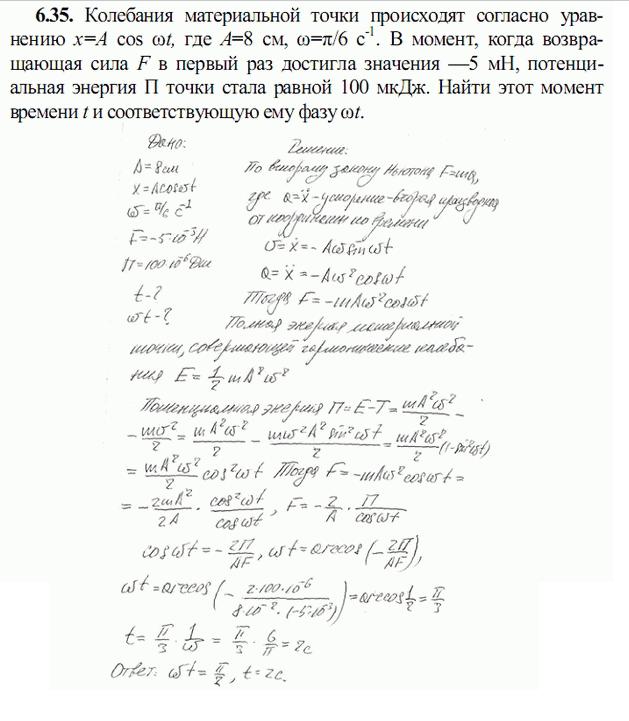 6.35. Колебания материальной точки происходят согласно урав-
нению x=A cos ωt, где A=8 см, ω=π/6 с⁻¹. В момент, когда возвра-
щающая сила F в первый раз достигла значения —5 мН, потенци-
альная энергия П точки стала равной 100 мкДж. Найти этот момент
времени t и соответствующую ему фазу ωt.
Дано:
A=8см
x=Acosωt
ω=π/6 с⁻¹
F=-5·10⁻³Н
П=100·10⁻⁶Дж
t-?
ωt-?
Решение:
По второму закону Ньютона F=ma,
где a=ẍ-ускорение-вторая производная
от координаты по времени
υ=ẋ=-Aωsinωt
a=ẍ=-Aω²cosωt
Тогда F=-mAω²cosωt
Полная энергия материальной
точки, совершающей гармонические колеба-
ния E=1/2 mA²ω²
Потенциальная энергия П=E-T=mA²ω²/2 -
- mυ²/2 = mA²ω²/2 - mω²A²sin²ωt/2 = mA²ω²/2 (1-sin²ωt)
= mA²ω²/2 cos²ωt Тогда F=-mAω²cosωt=
= -2mA²/2A · cos²ωt/cosωt, F=-2/A · П/cosωt
cosωt=-2П/AF, ωt=arccos(-2П/AF),
ωt=arccos(-2·100·10⁻⁶/8·10⁻²·(-5·10⁻³))=arccos1/2=π/3
t=π/3·1/ω=π/3·6/π=2с
Ответ: ωt=π/2, t=2с.